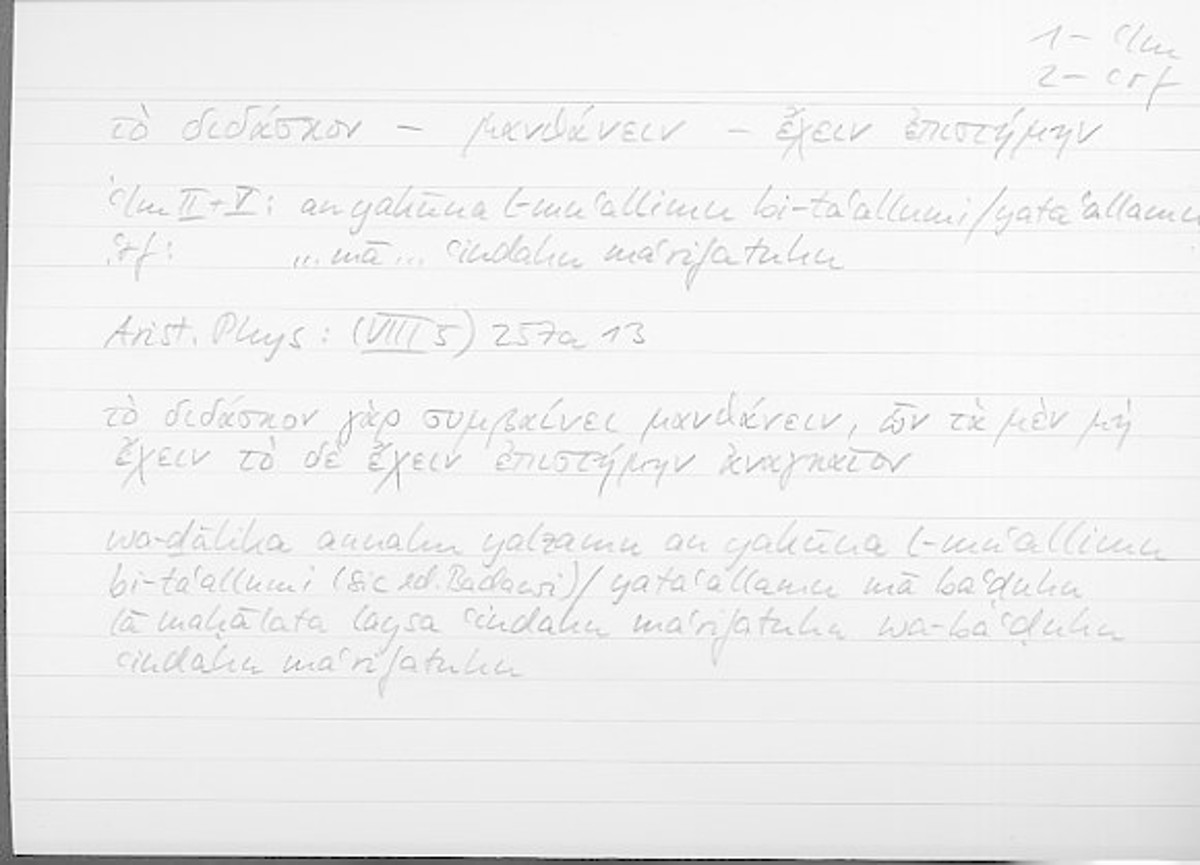 1 – ʿlm
2 – ʿrf
τὸ διδάσκον – μανθάνειν – ἔχειν ἐπιστήμην
ʿlm II + V: an yakūna l-muʿallimu bi-taʿallumi/yataʿallamu
ʿrf: ... mā ... ʿindahu maʿrifatuhu
Arist. Phys: (VIII 5) 257a 13
τὸ διδάσκον γὰρ συμβαίνει μανθάνειν, ὧν τὰ μὲν μὴ
ἔχειν τὸ δὲ ἔχειν ἐπιστήμην ἀναγκαῖον
wa-ḏālika annahu yalzamu an yakūna l-muʿallimu
bi-taʿallumi (sic ed. Badawi)/yataʿallamu mā baʿḍuhu
lā maḥālata laysa ʿindahu maʿrifatuhu wa-baʿḍuhu
ʿindahu maʿrifatuhu